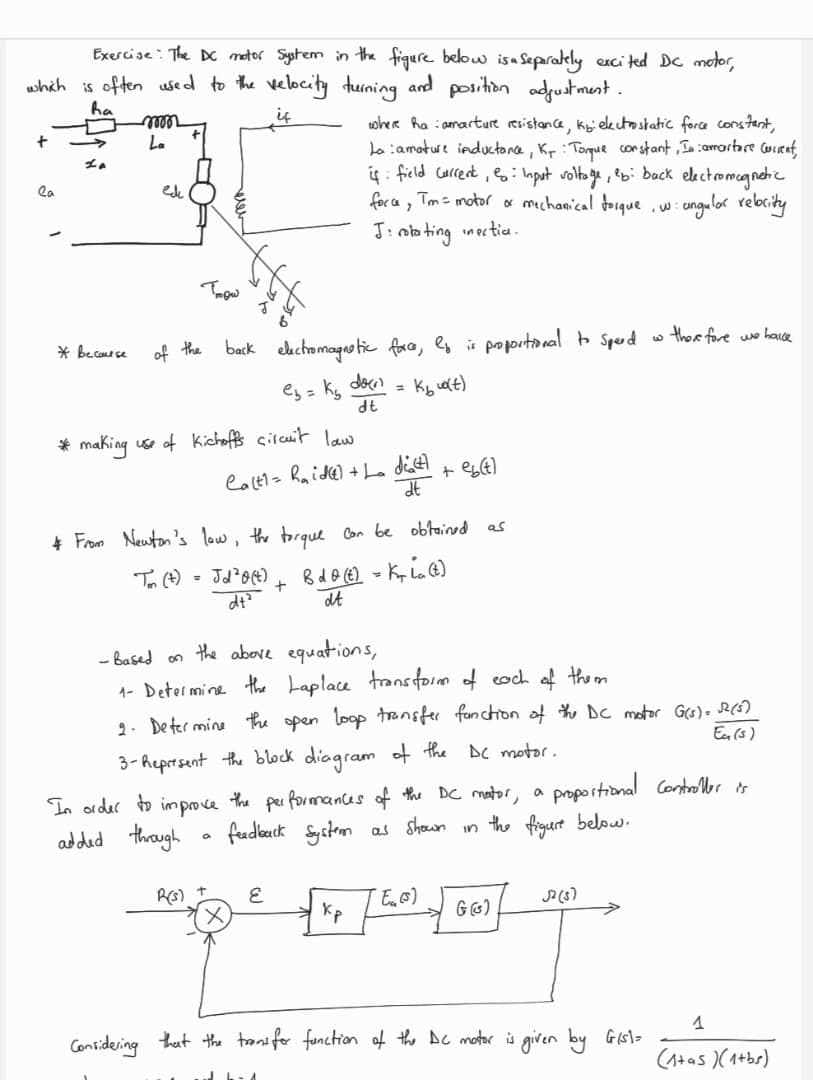 Exercise : The DC motor System in the figure below is a Separately excited DC motor,
which is often used to the velocity turning and position adjustment .
Ra
La
+
+
Ia
ea
-
if
where Ra : amarture resistance, Kb: electrostatic force constant,
La : amature inductance , KT : Torque constant , Ia : amarture Current,
if : field current , : Input voltage , eb: back electromagnetic
force , Tm = motor or mechanical torque , w : angular velocity
J : rotating inertia .
J
B
* Because of the back electromagnetic force, eb is proportional to Speed w therefore we have
eb = Kb dθ(t)/dt = Kb w(t)
* making use of Kichoffs circuit law
ea(t) = Ra ia(t) + La dia(t)/dt + eb(t)
* From Newton's law , the torque can be obtained as
Tm (t) = Jd²θ(t)/dt² + B d θ (t)/dt = KT ia (t)
- Based on the above equations,
1- Determine the Laplace transform of each of them
2. Determine the open loop transfer fonction of the DC motor G(s) = Ω(s)/Ea(s)
3- Represent the block diagram of the DC motor .
In order to improve the performances of the DC motor, a proportional Controller is
added through a feedback System as Shown in the figure below.
R(s) + ε Kp Ea(s) G(s) Ω(s)
X
-
Considering that the transfer function of the DC motor is given by G(s) = 1/(1+as)(1+bs)